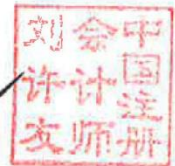 中国注册
会计师
刘许友